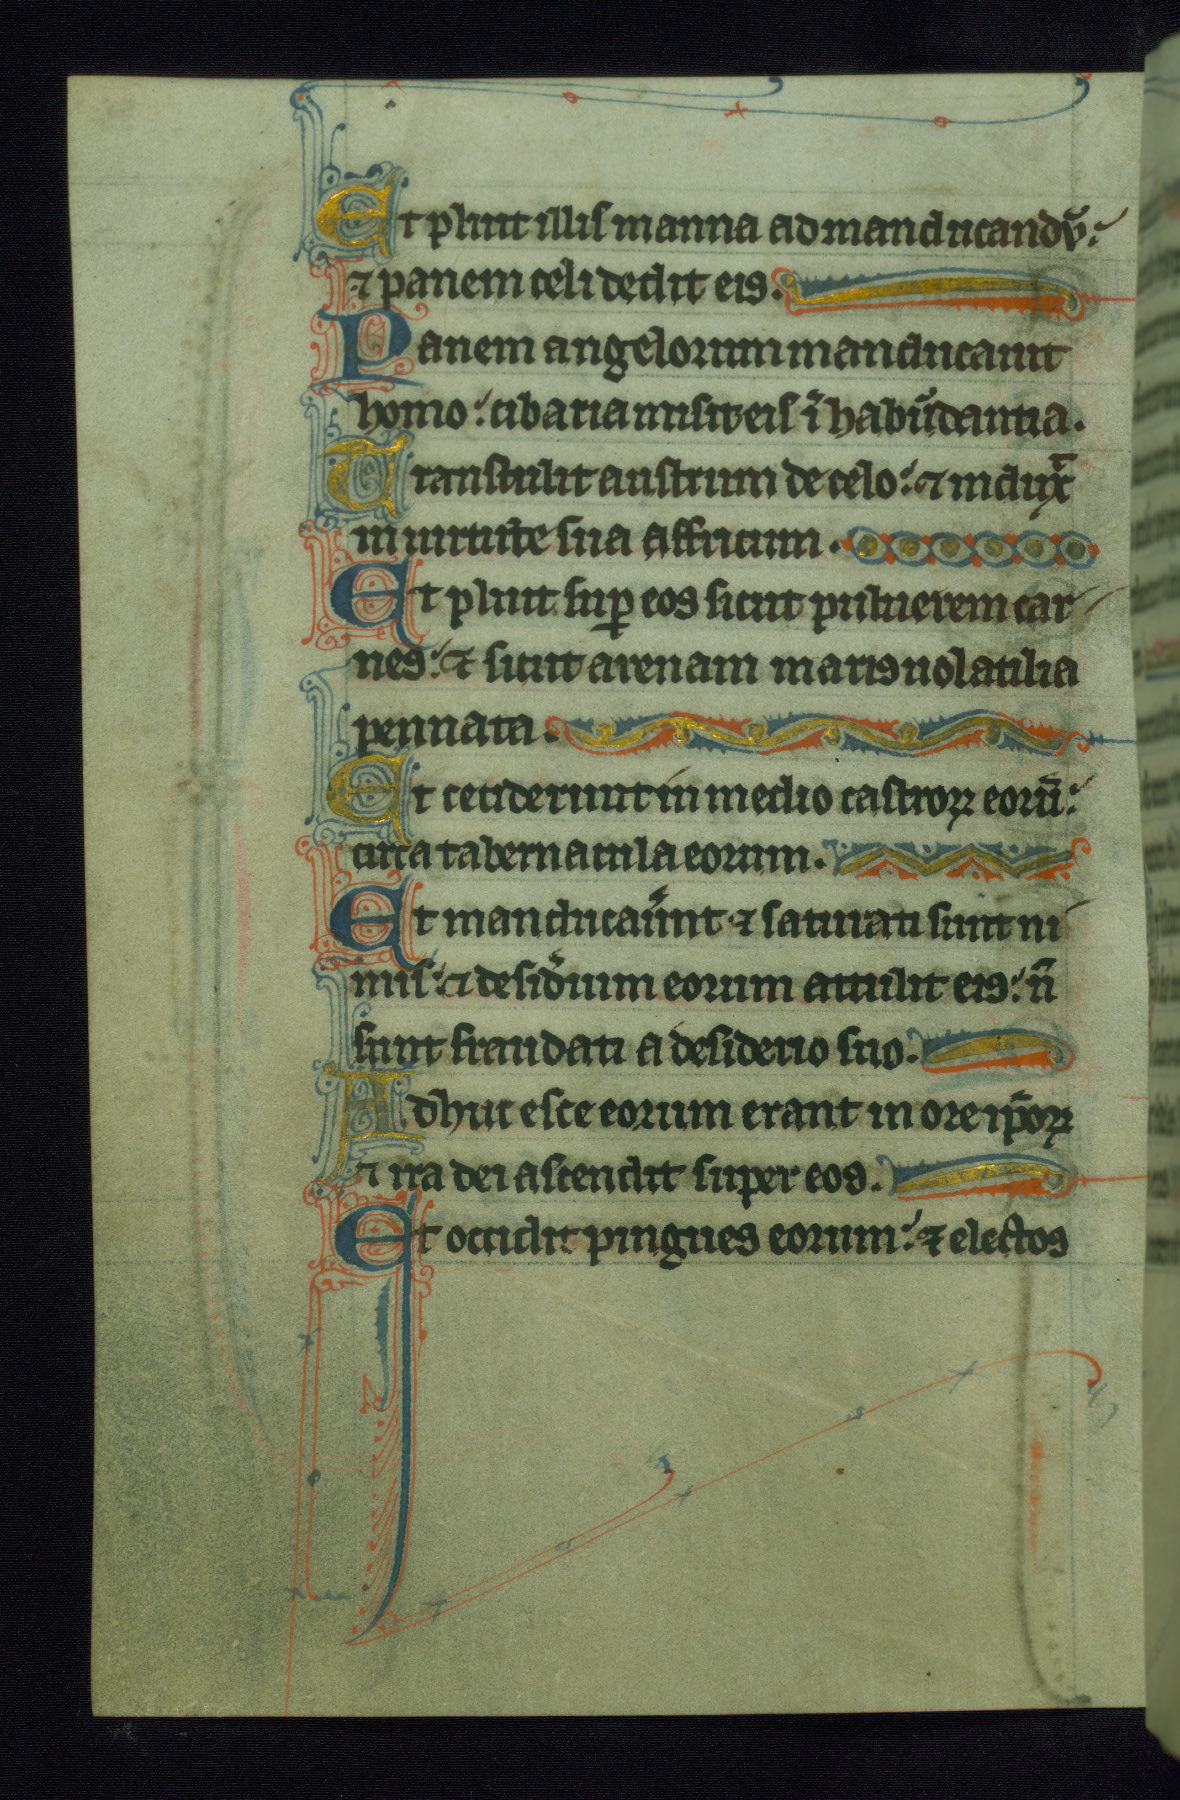 Et pluit illis manna ad manducandū:
⁊ panem celi dedit eis.
Panem angelorum manducauit
homo: cibaria misit eis ī habūdantia.
Transtulit austrum de celo: ⁊ indux̄
in uirtute sua affricum.
Et pluit suꝑ eos sicut puluerem car
nes: ⁊ sicut arenam maris uolatilia
pennata.
Et ceciderunt in medio castroꝝ eorū:
circa tabernacula eorum.
Et manducau͛unt ⁊ saturati sunt ni
mis: ⁊ desid͛ium eorum attulit eis: n̄
sunt fraudati a desiderio suo.
Adhuc esce eorum erant in ore ip̄oꝝ
⁊ ira dei ascendit super eos.
Et occidit pingues eorum: ⁊ electos